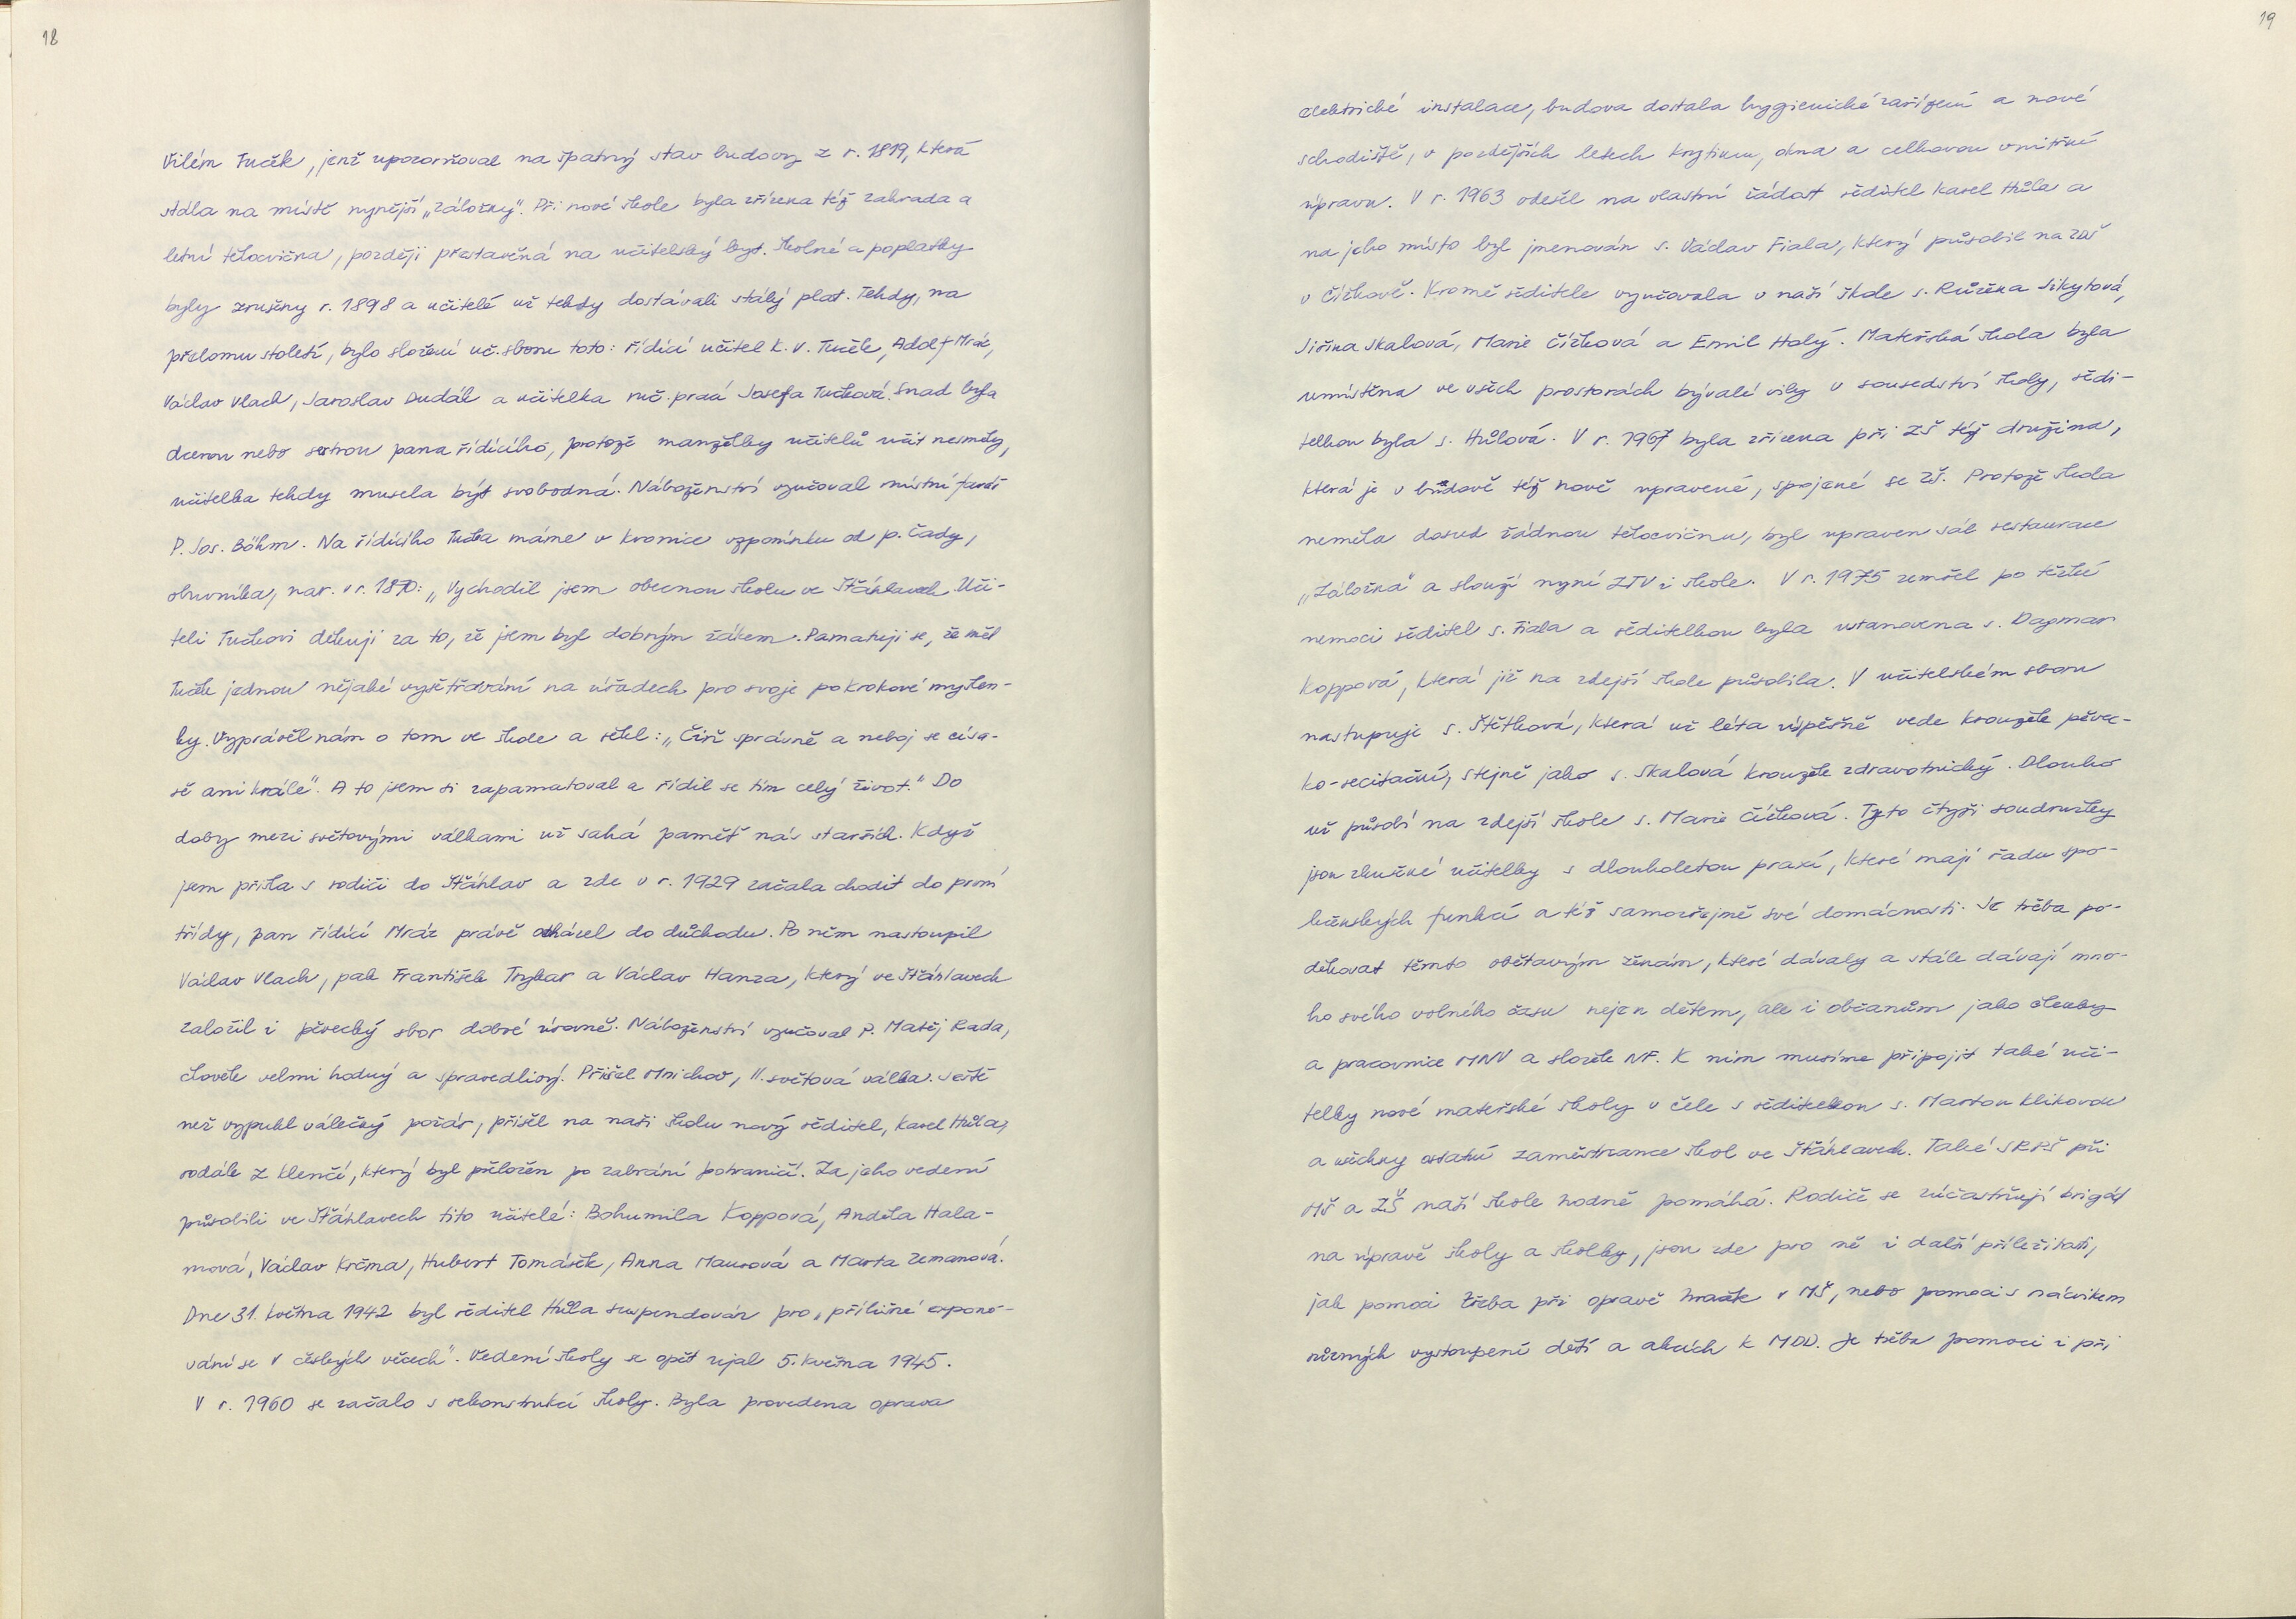 18
Vilém Tuček, jenž upozorňoval na špatný stav budovy z r. 1819, která
stála na místě nynější „Záložny“. Při nové škole byla zřízena též zahrada a
letní tělocvična, později přestavěná na učitelský byt. Školné a poplatky
byly zrušeny r. 1898 a učitelé už tehdy dostávali stálý plat. Tehdy, na
přelomu století, bylo složení uč. sboru toto: řídící učitel K. V. Tuček, Adolf Mráz,
Václav Vlach, Jaroslav Dudák a učitelka ruč. prací Josefa Tučková. Snad byla
dcerou nebo sestrou pana řídícího, protože manželky učitelů učit nesměly,
učitelka tehdy musela být svobodná. Náboženství vyučoval místní farář
P. Jos. Böhm. Na řídícího Tučka máme v kronice vzpomínku od p. Čady,
obuvníka, nar. v r. 1870: „Vychodil jsem obecnou školu ve Šťáhlavech. Uči-
teli Tučkovi děkuji za to, že jsem byl dobrým žákem. Pamatuji se, že měl
Tuček jednou nějaké vyšetřování na úřadech pro svoje pokrokové myšlen-
ky. Vyprávěl nám o tom ve škole a řekl: „Čiň správně a neboj se císa-
ře ani krále“. A to jsem si zapamatoval a řídil se tím celý život.“ Do
doby mezi světovými válkami už sahá paměť nás starších. Když
jsem přišla s rodiči do Šťáhlav a zde v r. 1929 začala chodit do první
třídy, pan řídící Mráz právě odcházel do důchodu. Po něm nastoupil
Václav Vlach, pak František Trykar a Václav Hanza, který ve Šťáhlavech
založil i pěvecký sbor dobré úrovně. Náboženství vyučoval P. Matěj Rada,
člověk velmi hodný a spravedlivý. Přišel Mnichov, II. světová válka. Ještě
než vypukl válečný požár, přišel na naši školu nový ředitel, Karel Hůla,
rodák z Klenčí, který byl přeložen po zabrání pohraničí. Za jeho vedení
působili ve Šťáhlavech tito učitelé: Bohumila Koppová, Anděla Hala-
mová, Václav Krčma, Hubert Tomášek, Anna Mausová a Marta Zemanová.
Dne 31. května 1942 byl ředitel Hůla suspendován pro „přílišné exponо-
vání se v českých věcech“. Vedení školy se opět ujal 5. května 1945.
V r. 1960 se začalo s rekonstrukcí školy. Byla provedena oprava
19
elektrické instalace, budova dostala hygienické zařízení a nové
schodiště, v pozdějších letech krytinu, okna a celkovou vnitřní
úpravu. V r. 1963 odešel na vlastní žádost ředitel Karel Hůla a
na jeho místo byl jmenován s. Václav Fiala, který působil na ZDŠ
v Čížkově. Kromě ředitele vyučovala v naší škole s. Růžena Sikytová,
Jiřina Skalová, Marie Čížková a Emil Holý. Mateřská škola byla
umístěna ve všech prostorách bývalé vily v sousedství školy, ředi-
telkou byla s. Hůlová. V r. 1967 byla zřízena při ZŠ též družina,
která je v budově též nově upravené, spojené se ZŠ. Protože škola
neměla dosud žádnou tělocvičnu, byl upraven sál restaurace
„Záložna“ a slouží nyní ZTV i škole. V r. 1975 zemřel po těžké
nemoci ředitel s. Fiala a ředitelkou byla ustanovena s. Dagmar
Koppová, která již na zdejší škole působila. V učitelském sboru
nastupuje s. Štětková, která už léta úspěšně vede kroužek pěvec-
ko-recitační, stejně jako s. Skalová kroužek zdravotnický. Dlouho
už působí na zdejší škole s. Marie Čížková. Tyto čtyři soudružky
jsou zkušené učitelky s dlouholetou praxí, které mají řadu spo-
lečenských funkcí a též samozřejmě své domácnosti. Je třeba po-
děkovat těmto obětavým ženám, které dávaly a stále dávají mno-
ho svého volného času nejen dětem, ale i občanům jako členky
a pracovnice MNV a složek NF. K nim musíme připojit také uči-
telky nové mateřské školy v čele s ředitelkou s. Martou Klikovou
a všechny ostatní zaměstnance škol ve Šťáhlavech. Také SRPŠ při
MŠ a ZŠ naší škole hodně pomáhá. Rodiče se zúčastňují brigád
na úpravě školy a školky, jsou zde pro ně i další příležitosti,
jak pomoci třeba při opravě hraček v MŠ, nebo pomoci s nácvikem
různých vystoupení dětí a akcích k MDD. Je třeba pomoci i při